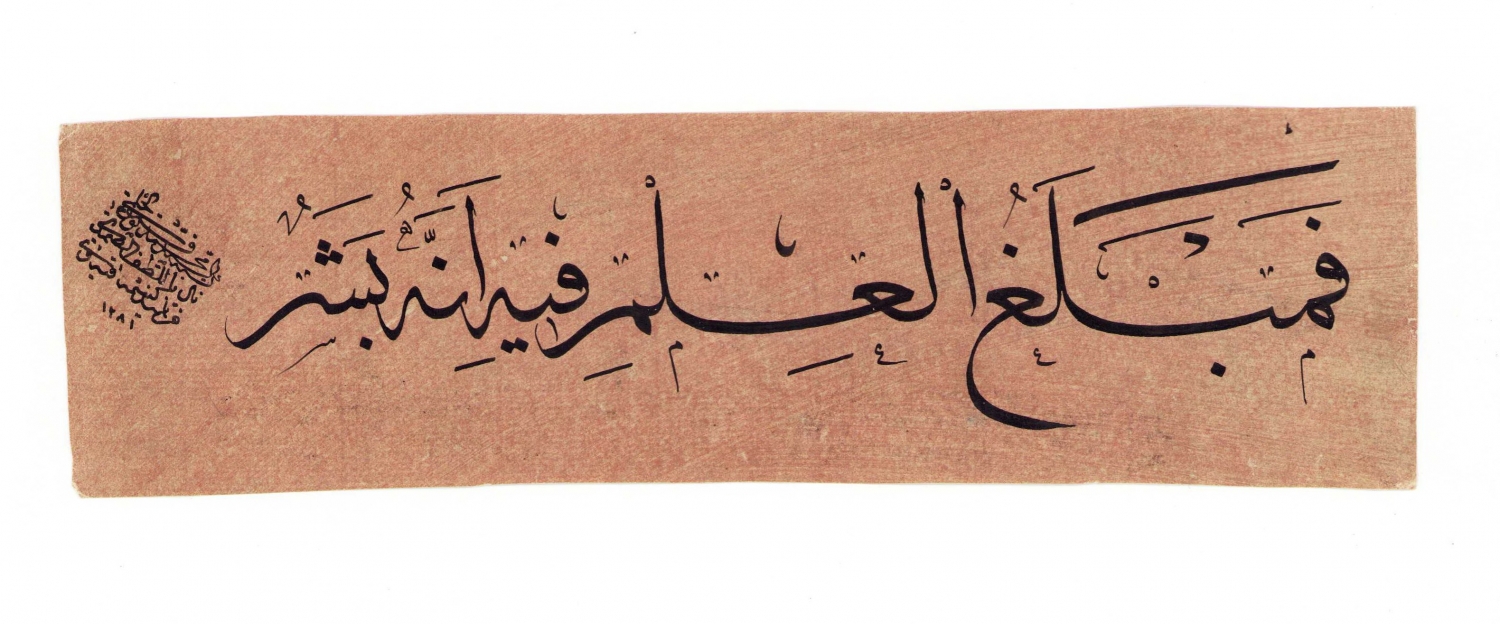 فَمَبْلَغُ الْعِلْمِ فِيهِ أَنَّهُ بَشَرٌ
١٢٨١